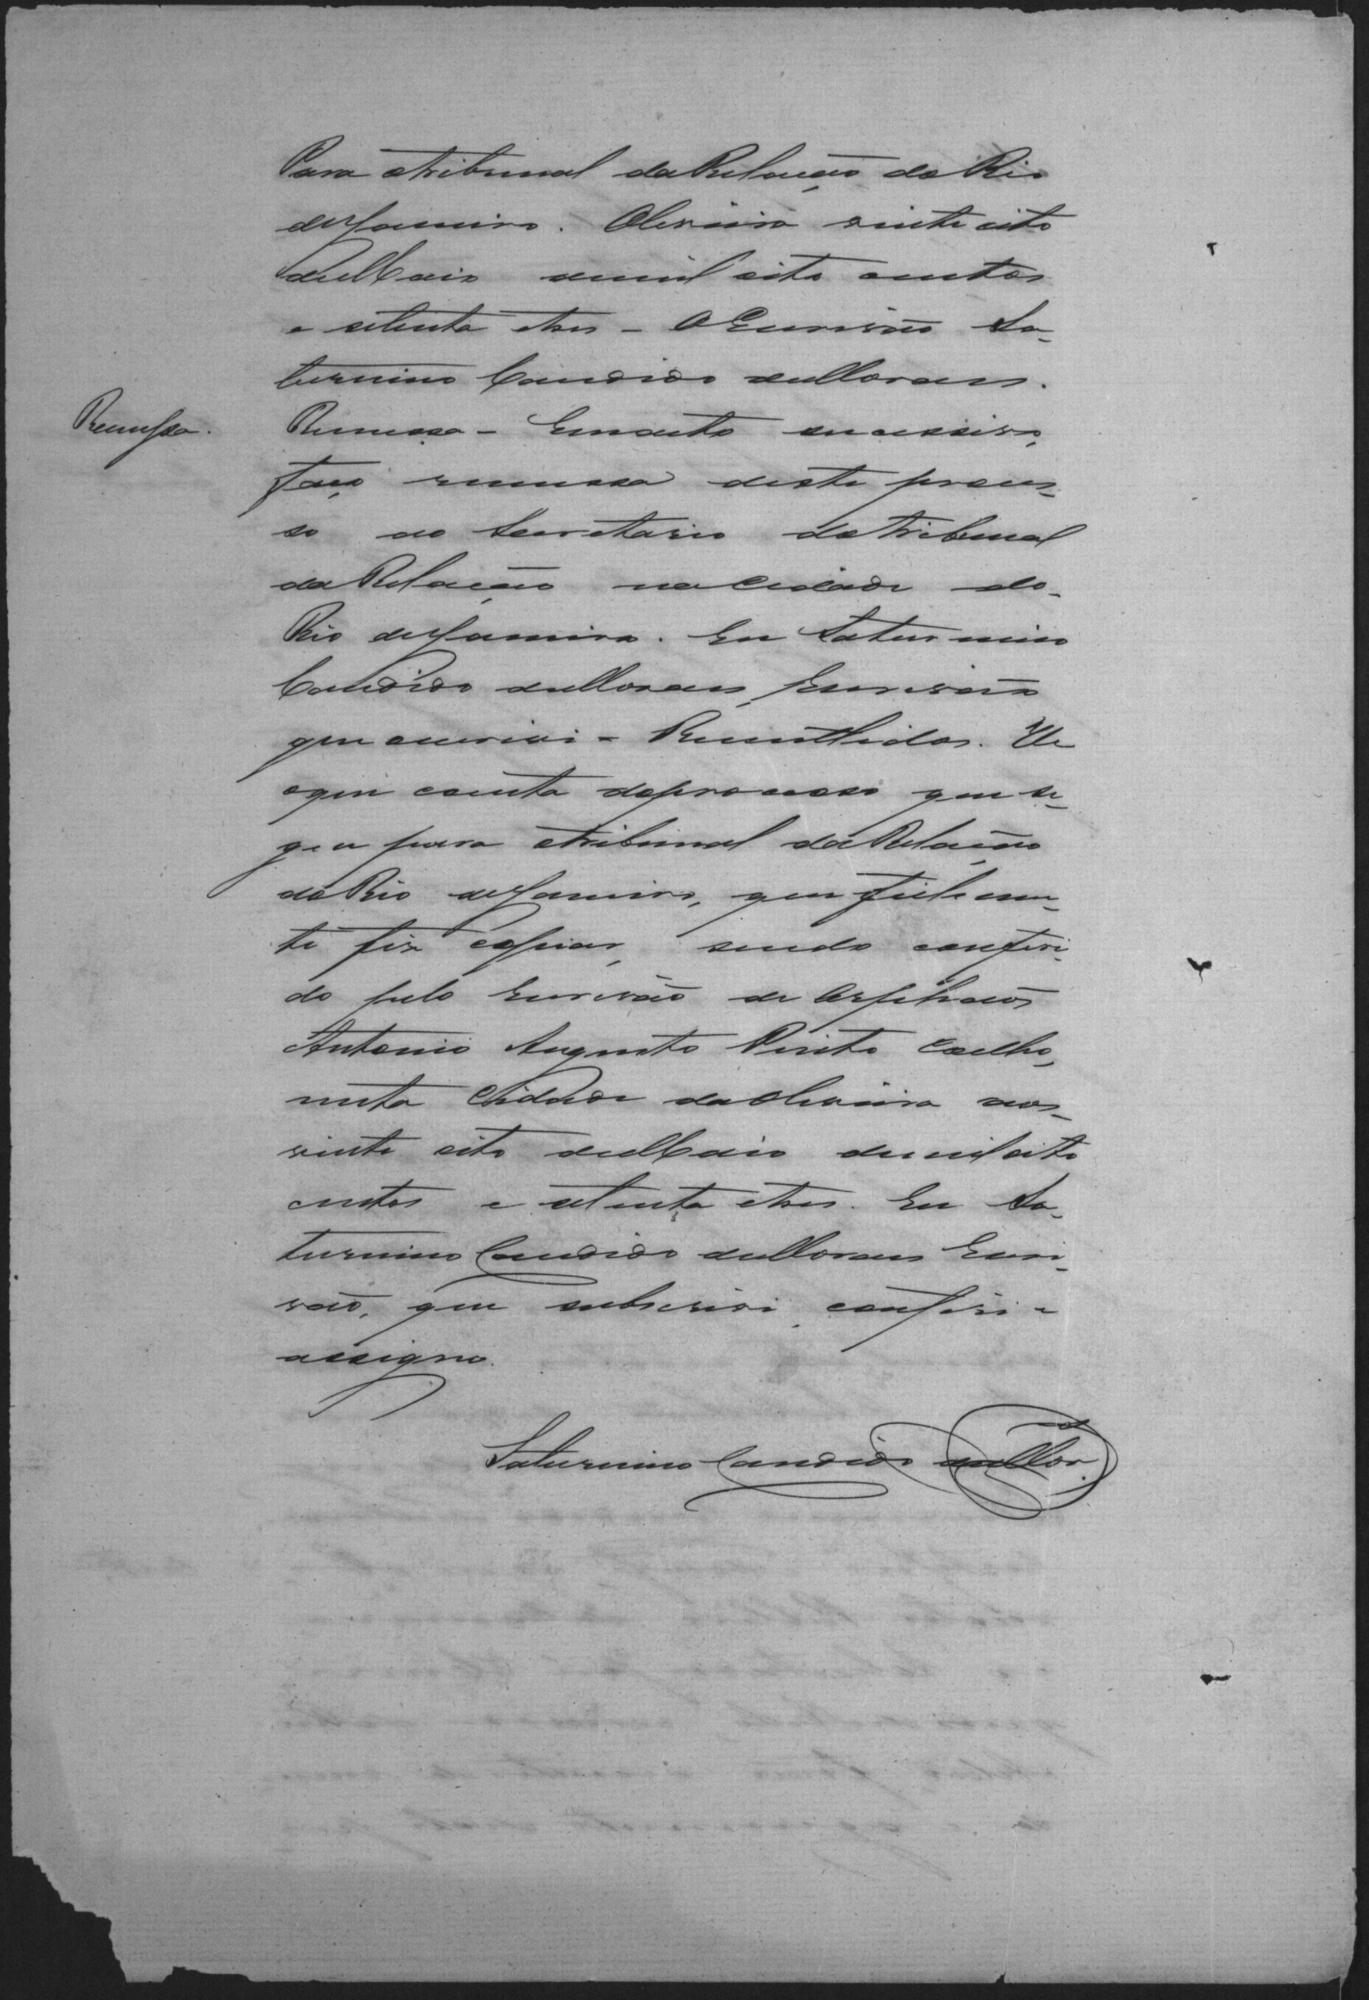 Para otribunal da Relação do Rio
deJaneiro. Oliveira vinte oito
deMaio demil oito centos
e setenta etres - OEscrivão Sa-
turnino Candido deMoraes.
Remessa.
Remessa - Emacto successivo,
faço remessa deste proces-
so ao Secretario dotribunal
da Relação na Cidade do-
Rio deJaneiro. Eu Saturnino
Candido deMoraes, Escrivão
que escrivi - Remettidos. He
oque consta doprocesso que se-
gue para otribunal da Relação
do Rio deJaneiro, que fielmen-
te fiz copiar, sendo conferi-
do pelo Escrivão de Orphaõs
Antonio Augusto Pinto Coelho,
nesta Cidade da Oliveira aos-
vinte oito deMaio demil oito
centos e setenta etres. Eu Sa-
turnino Candido deMoraes Escri-
vaõ, que subscrivi, conferi e
assigno.
Saturnino Candido deMor.